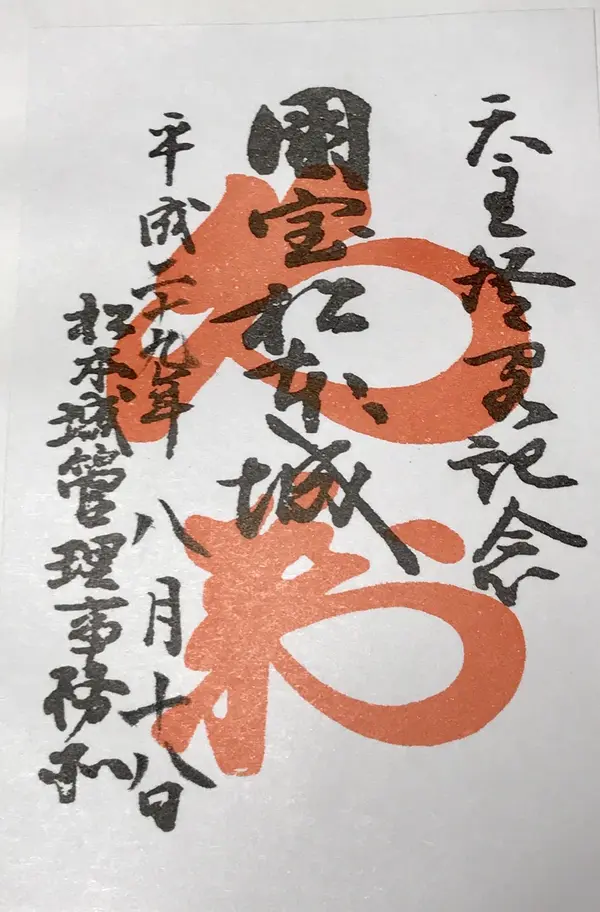 天主登閣記念
國宝松本城
平成二十九年八月十八日
松本城管理事務所